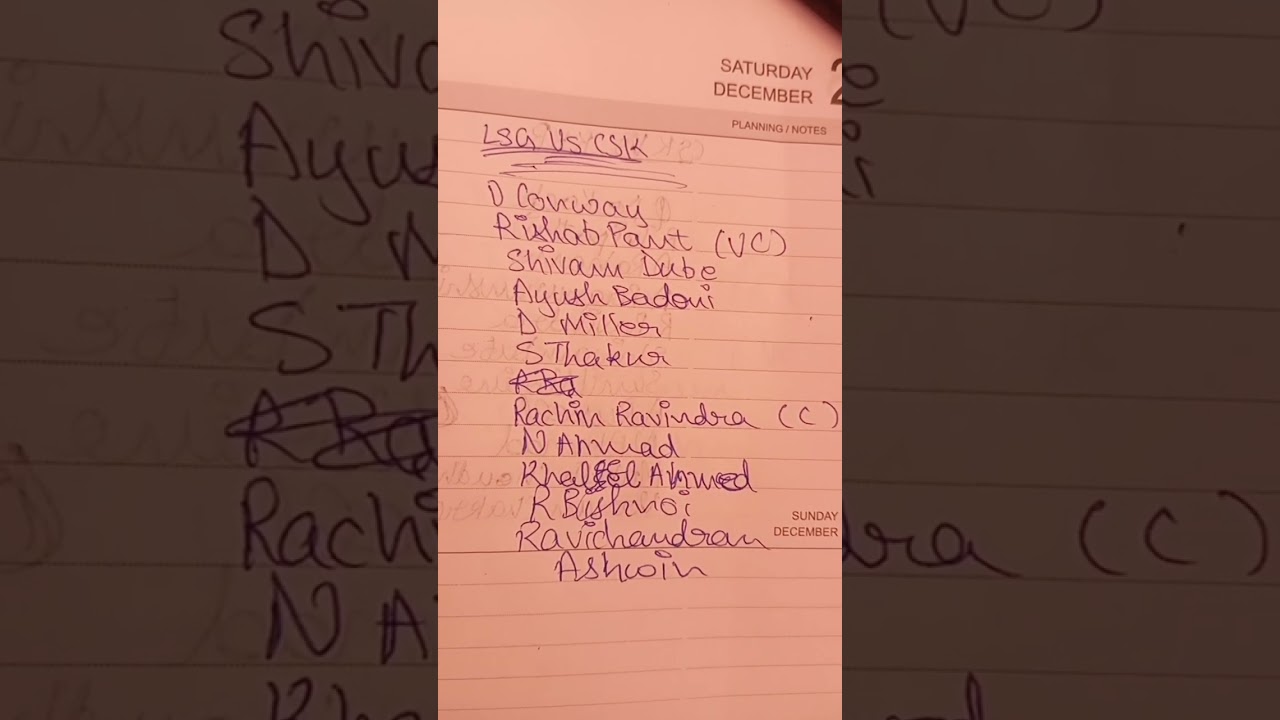 SATURDAY
DECEMBER
PLANNING / NOTES
LSG VS CSK
D Conway
Rishab Pant (VC)
Shivam Dube
Ayush Badoni
D Miller
S Thakur
Rachin Ravindra (C)
N Ahmad
Khaleel Ahmed
R Bishnoi
SUNDAY
DECEMBER
Ravichandran
Ashwin